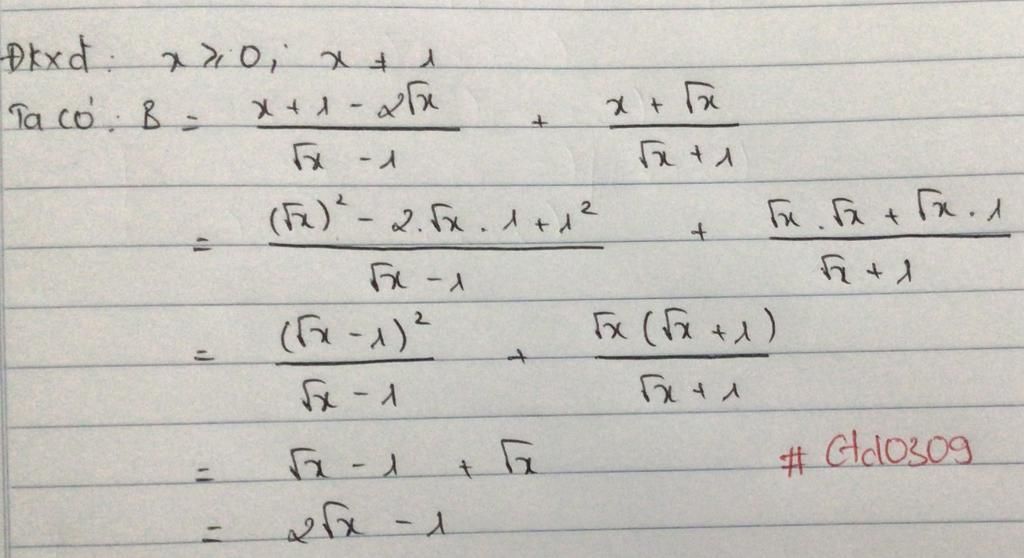 Đkxđ: x ≥ 0; x ≠ 1
Ta có: B = (x + 1 - 2√x)/(√x - 1) + (x + √x)/(√x + 1)
= ((√x)² - 2.√x . 1 + 1²)/(√x - 1) + (√x . √x + √x . 1)/(√x + 1)
= (√x - 1)²/(√x - 1) + √x (√x + 1)/(√x + 1)
= √x - 1 + √x
# Gtd0309
= 2√x - 1